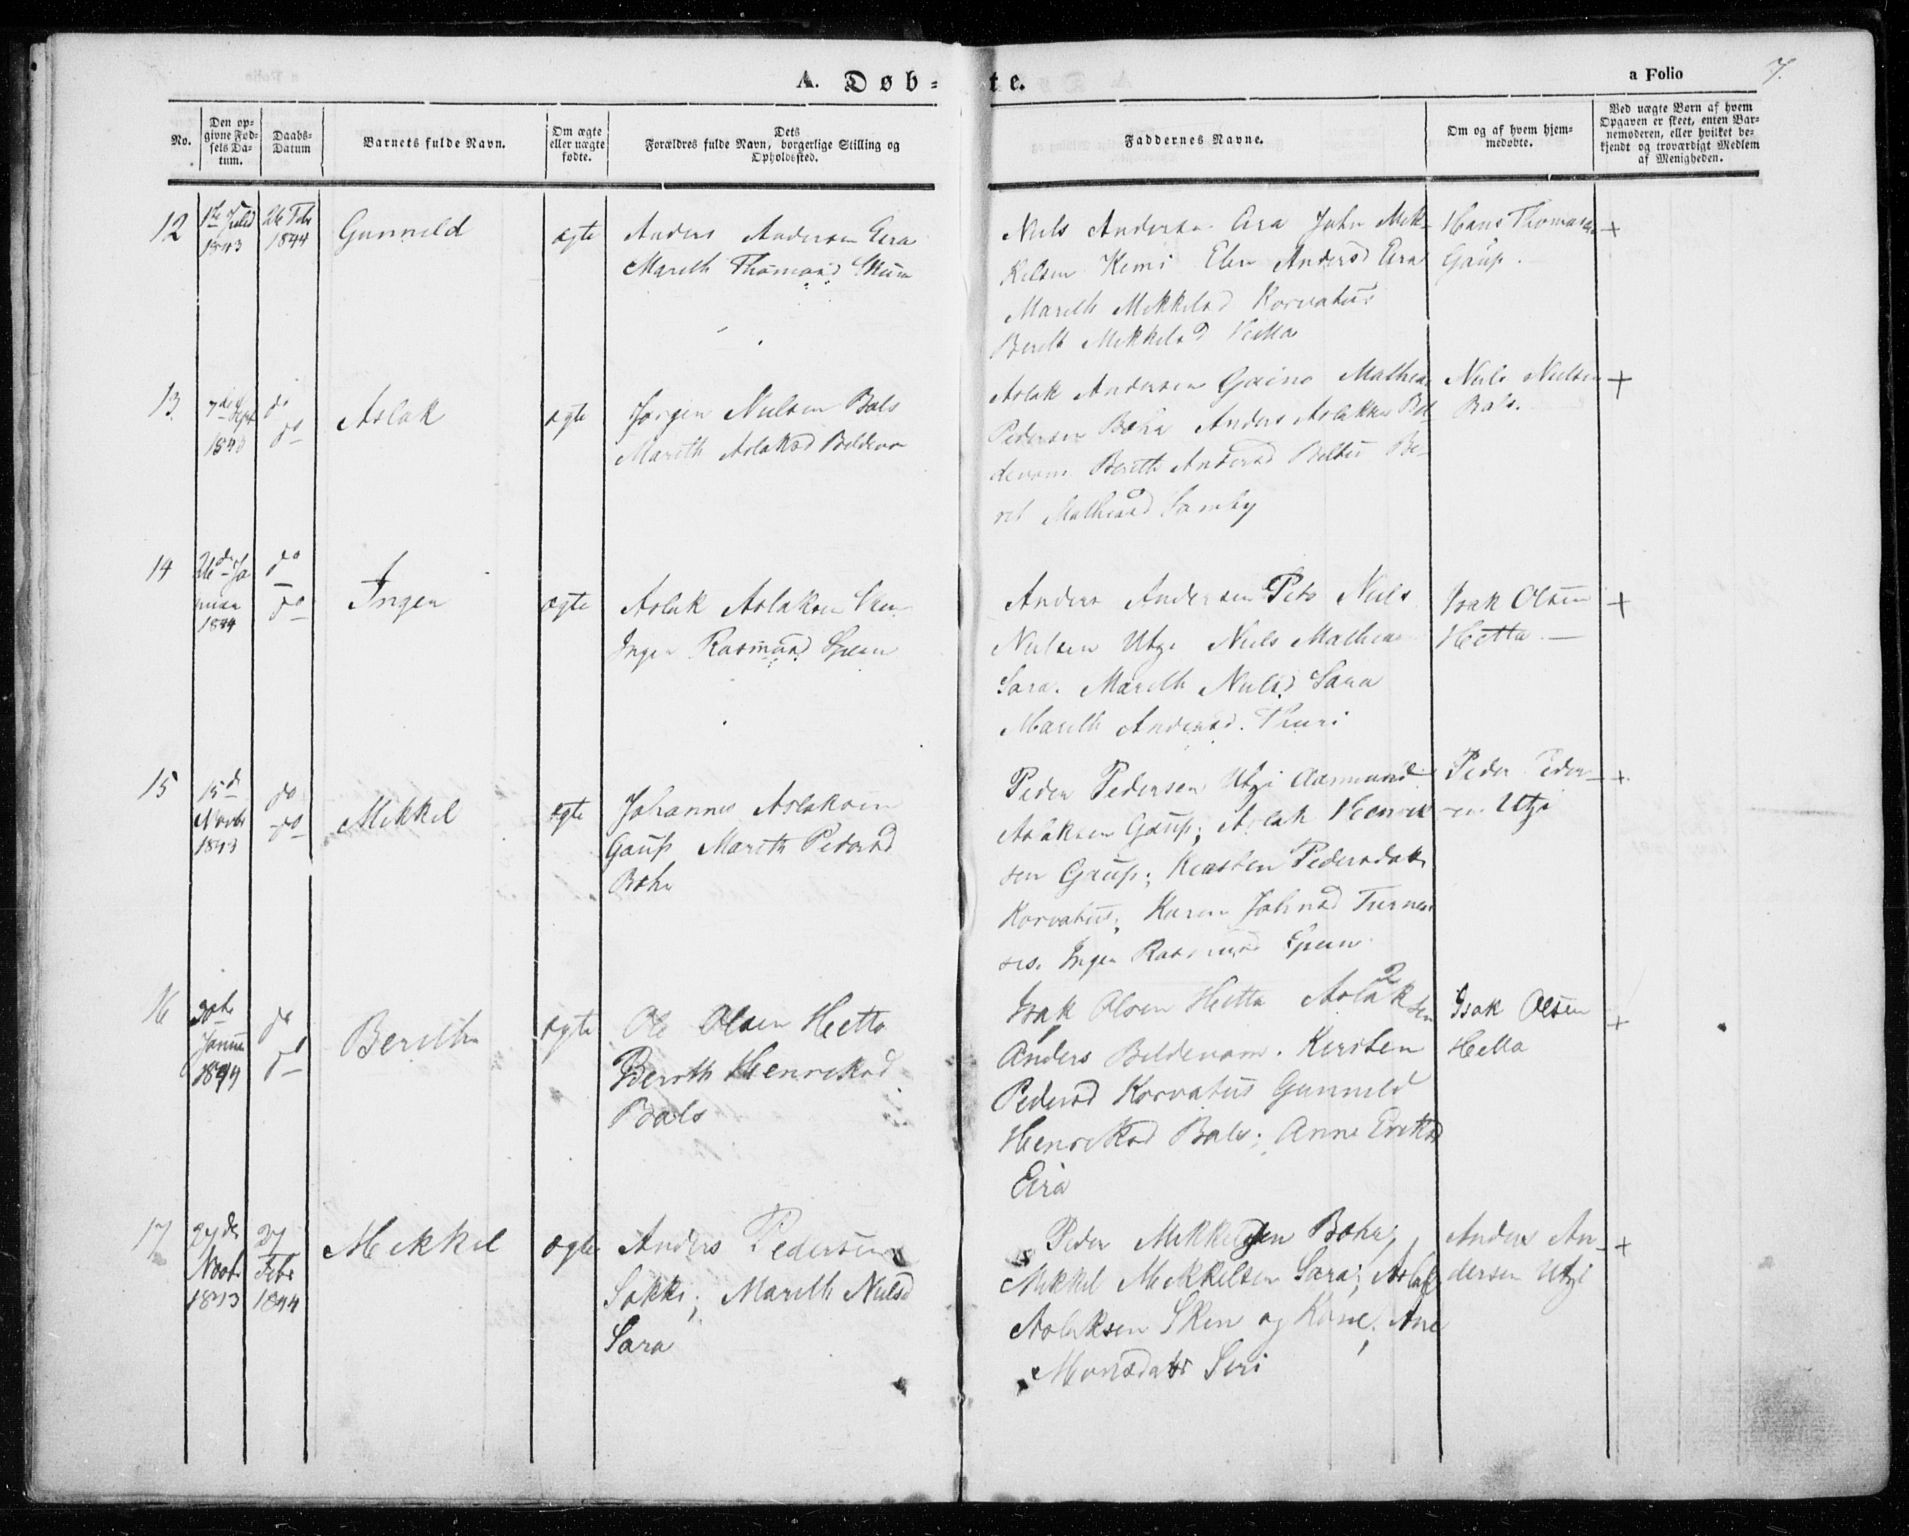 A. Døb-te.
a Folio 7.
No.
Den op-
givne Fød-
sels Da-
tum.
Daabs-
Datum
Barnets fulde Navn.
Om ægte
eller uægte
fødte.
Dets
Forældres fulde Navn, borgerlige Stilling og
Opholdssted.
Faddernes Navne.
Om og af hvem hjem-
medøbte.
Ved uægte Børn af hvem
Opgaven er skeet, enten Bar-
nemoderen, eller hvilket be-
kjendt og troværdigt Medlem
af Menigheden.
12
1843
26 Febr
1844
Gunneld
ægte
Anders Andersen Eira
Mareth Thomasd
Niels Andersen Eira John Mik-
kelsen Kemi Elen Andersd Eira
Mareth Mikkelsd Korvatus
Berit Mikkelsd
Hans Thomasen
Gaup.
+
13
7de Sept
1843
do
do
Aslak
ægte
Jørgen Nielsen Bals
Mareth Aslaksd Beldevar
Aslak Andersen Gaino Mathis
Pedersen Bæhr Anders Aslaksen Bel-
devam Berith Andersd Be-
ret Mathisd Samby
Niels Nielsen
Bals.
+
14
26de Ja
nuar
1844
do
do
Ingen
ægte
Aslak Aslaksen
Inger Rasmusd Spein
Anders Andersen Niels
Nielsen Utzi Niels Mathis
Sara. Mareth Nielsd Sara
Mareth Andersd. Thuri
Isak Olsen
Hetta. —
+
15
15de
Novbr
1843
do
do
Mikkel
ægte
Johannes Aslaksen
Gaup Mareth Pedersd
Bæhr
Peder Pedersen Utzi Aasmund
Aslaksen Gaup; Aslak Henrik
sen Gaup; Kersten Pedersdatr
Korvatus; Karen Johnsd Turner
Inger Rasmusd Spein
Peder Peder-
sen Utzi
+
16
30te
Janua
1844
do
do
Berith
ægte
Ole Olsen Hetta
Berith Henriksd
Bals
Isak Olsen Hetta Aslaksen
Anders Beldevam. Kersten
Pedersd Korvatus Gunneld
Henriksd Bals; Anne Eriksd
Eira
Isak Olsen
Hetta
+
17
27de
Novbr
1843
27
Febr
1844
Mikkel
ægte
Anders Pedersen
Sokki; Mareth Nielsd
Sara
Peder Mikkelsen Bæhr;
Mikkel Mikkelsen Sara; Aslak
Aslaksen Sken og Kone; Ane
Monsdatr Siri
Anders An-
dersen Utzi
+